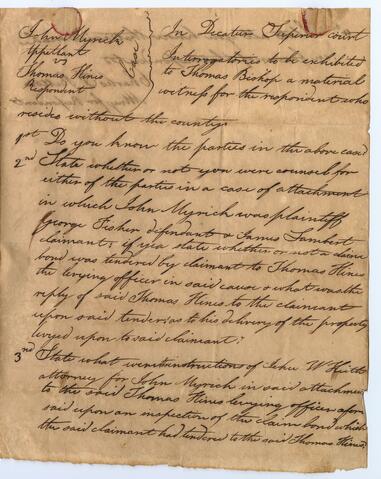 John Myrick
Appellant
vs
Thomas Hines
Respondent
Case
In Decatur Superior court
Interrogatories to be exhibited
to Thomas Bishop a material
witness for the respondent who
resides without the county.
1st Do you know the parties in the above case
2nd State whether or not you were counsel for
either of the parties in a case of attachment
in which John Myrick was plaintiff
George Fisher defendant & James Lambert
claimant, if yea state whether or not a claim
bond was tendered by claimant to Thomas Hines
the levying officer in said cause & what was the
reply of said Thomas Hines to the claimant
upon said tender as to his delivery of the property
levyed upon to said claimant?
3rd State what were instruction of John W
attorney for John Myrick in said attachment
to the said Thomas Hines levying officer afore
said upon an inspection of the claim bond which
the said claimant had tendered to the said Thomas Hines,